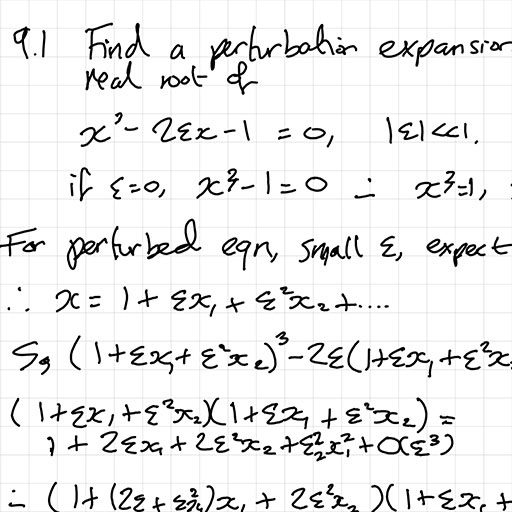 9.1 Find a perturbation expansion
real root of
x³ - 2εx - 1 = 0, |ε| << 1.
if ε=0, x³ - 1 = 0 ∴ x³=1,
For perturbed eqn, small ε, expect
∴ x = 1 + εx₁ + ε²x₂ + ....
So, (1+εx₁+ε²x₂)³ - 2ε(1+εx₁+ε²x
(1+εx₁+ε²x₂)(1+εx₁+ε²x₂) =
1 + 2εx₁ + 2ε²x₂ + ε²x₁² + O(ε³)
∴ (1+(2ε+ )x₁ + 2ε²x₂)(1+εx₁+